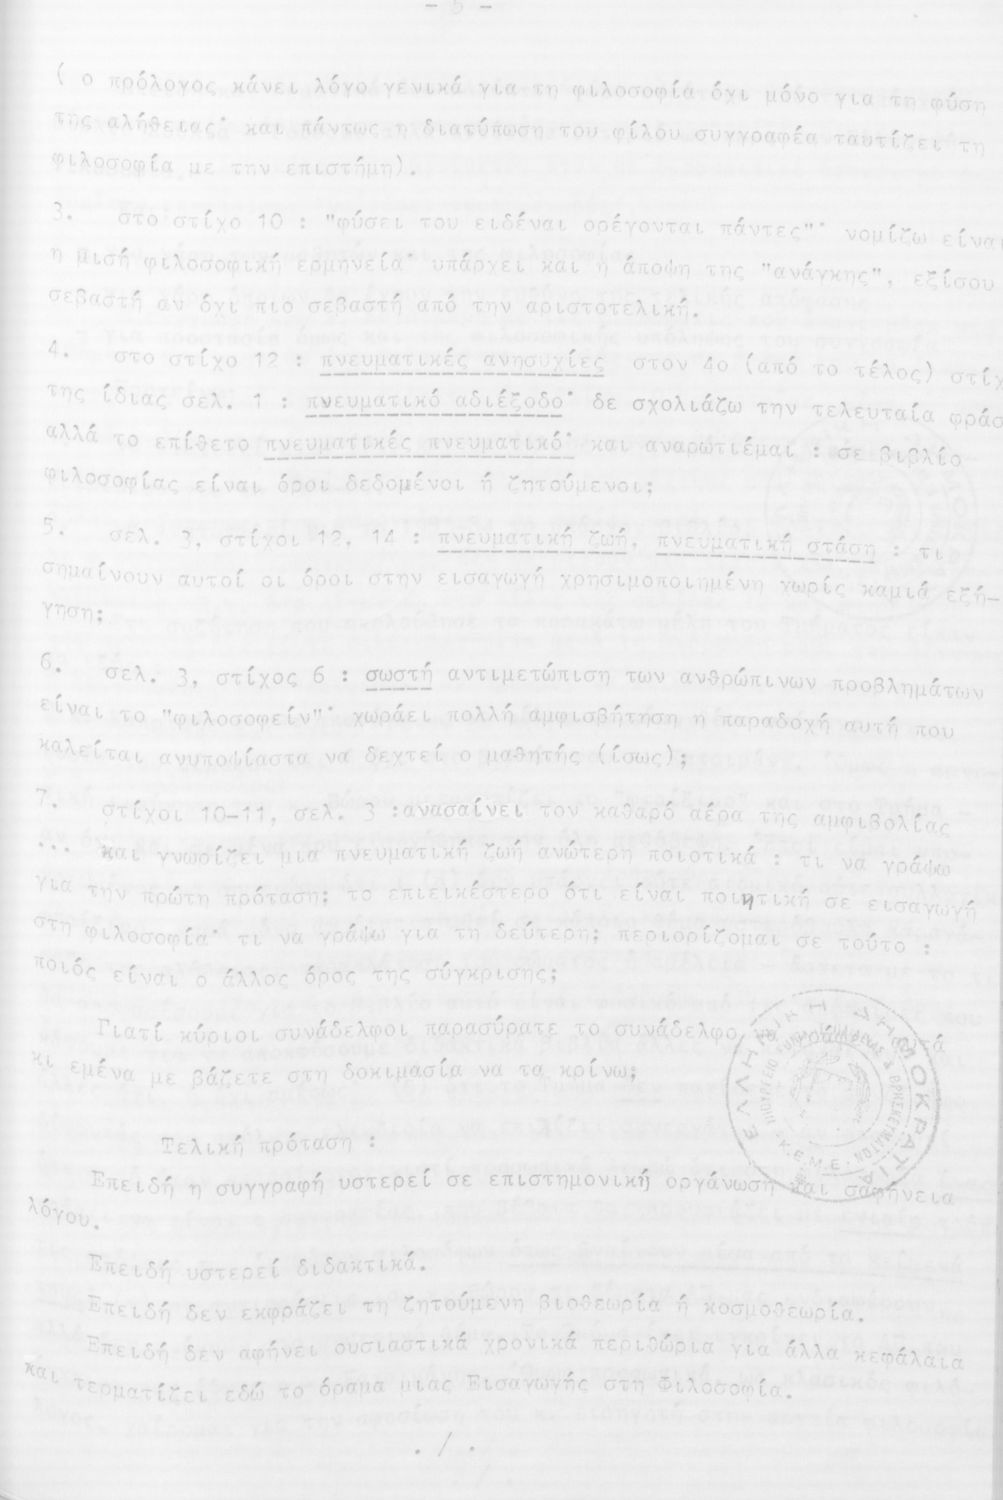 - 5 -
( ο πρόλογος κάνει λόγο γενικά για τη φιλοσοφία όχι μόνο για τη φύση
της αλήθειας· και πάντως η διατύπωση του φίλου συγγραφέα ταυτίζει τη
φιλοσοφία με την επιστήμη).
3. στο στίχο 10 : "φύσει του ειδέναι ορέγονται πάντες"· νομίζω είναι
η μισή φιλοσοφική ερμηνεία· υπάρχει και η άποψη της "ανάγκης", εξίσου
σεβαστή αν όχι πιο σεβαστή από την αριστοτελική.
4. στο στίχο 12 : πνευματικές ανησυχίες στον 4ο (από το τέλος) στίχ
της ίδιας σελ. 1 : πνευματικό αδιέξοδο· δε σχολιάζω την τελευταία φράσ
αλλά το επίθετο πνευματικές πνευματικό· και αναρωτιέμαι : σε βιβλίο
φιλοσοφίας είναι όροι δεδομένοι ή ζητούμενοι;
5. σελ. 3, στίχοι 12, 14 : πνευματική ζωή, πνευματική στάση : τι
σημαίνουν αυτοί οι όροι στην εισαγωγή χρησιμοποιημένη χωρίς καμιά εξή-
γηση;
6. σελ. 3, στίχος 6 : σωστή αντιμετώπιση των ανθρώπινων προβλημάτων
είναι το "φιλοσοφείν"· χωράει πολλή αμφισβήτηση η παραδοχή αυτή που
καλείται ανυποψίαστα να δεχτεί ο μαθητής (ίσως);
7. στίχοι 10-11, σελ. 3 :ανασαίνει τον καθαρό αέρα της αμφιβολίας
... και γνωρίζει μια πνευματική ζωή ανώτερη ποιοτικά : τι να γράψω
για την πρώτη πρόταση; το επιεικέστερο ότι είναι ποιητική σε εισαγωγή
στη φιλοσοφία· τι να γράψω για τη δεύτερη; περιορίζομαι σε τούτο :
ποιός είναι ο άλλος όρος της σύγκρισης;
Γιατί κύριοι συνάδελφοι παρασύρατε το συνάδελφο να γράφει αυτά
κι εμένα με βάζετε στη δοκιμασία να τα κρίνω;
ΕΛΛΗΝΙΚΗ ΔΗΜΟΚΡΑΤΙΑ
ΥΠΟΥΡΓΕΙΟ ΕΘΝ. ΠΑΙΔΕΙΑΣ & ΘΡΗΣΚΕΥΜΑΤΩΝ
Κ.Ε.Μ.Ε.
Τελική πρόταση :
Επειδή η συγγραφή υστερεί σε επιστημονική οργάνωση και σαφήνεια
λόγου.
Επειδή υστερεί διδακτικά.
Επειδή δεν εκφράζει τη ζητούμενη βιοθεωρία ή κοσμοθεωρία.
Επειδή δεν αφήνει ουσιαστικά χρονικά περιθώρια για άλλα κεφάλαια
και τερματίζει εδώ το όραμα μιας Εισαγωγής στη Φιλοσοφία.
./.